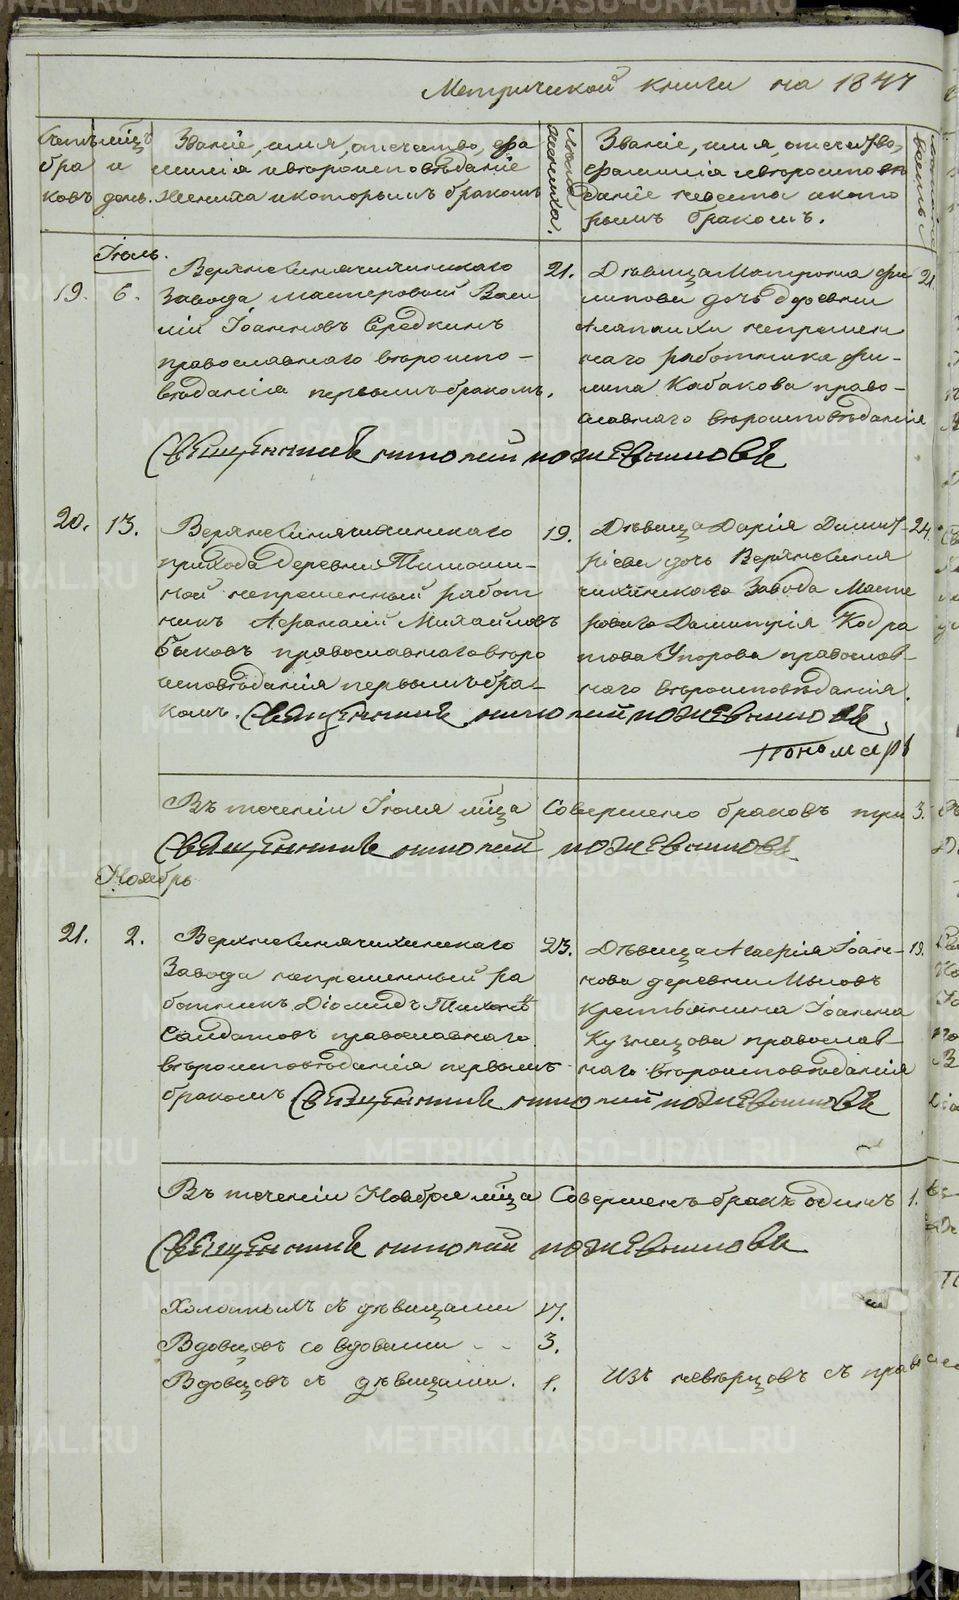 Метрической книги на 1847
Счетъ бра ковъ
мѣцъ и день.
Званіе, имя, отечество, фа
милія и вѣроисповѣданіе
жениха и которымъ бракомъ
Лѣта жениха.
Званіе, имя, отечество,
фамилія и вѣроисповѣ
даніе невесты и кото
рымъ бракомъ.
Іюль.
19. 6.
Верхнесинячихинскаго
завода мастеровой Васи
лій Іоанновъ Середкинъ
православнаго вѣроиспо-
вѣданія первымъ бракомъ.
21.
Дѣвица Матрона Фи
липова дочь деревни
Алапаихи непремен
наго работника Фи-
липа Кабакова право-
славнаго вѣроисповѣданія
21.
Священникъ Николай Пожевниковъ
20. 13.
Верхнесинячихинскаго
прихода деревни Тимоши-
ной непременный работ
никъ Афанасій Михайловъ
Быковъ православнаго вѣро
исповѣданія первымъ бра-
комъ. Священникъ Николай Пожевниковъ
19.
Дѣвица Дарія Димит-
ріева дочь Верхнесиня
чихинскаго Завода Масте
роваго Димитрія Кодра
това Упорова православ-
наго вѣроисповѣданія.
24.
Пономарь
Въ теченіи Іюля мѣца Совершено браковъ три 3.
Священникъ Николай Пожевниковъ
Ноябрь
21. 2.
Верхнесинячихинскаго
Завода непременный ра
ботникъ Діомидъ Тихоновъ
Солдатовъ православнаго
вѣроисповѣданія первымъ
бракомъ Священникъ Николай Пожевниковъ
23.
Дѣвица Агафія Іоан-
нова деревни Мысовъ
Крестьянина Іоанна
Кузнецова православ-
наго вѣроисповѣданія
19.
Въ теченіи Ноября мѣца Совершенъ бракъ одинъ 1.
Священникъ Николай Пожевниковъ
Холостыхъ съ дѣвицами 17.
Вдовцовъ со вдовами - - 3.
Вдовцовъ съ дѣвицами. 1.
Изъ неверцовъ съ прав
METRIKI.GASO-URAL.RU